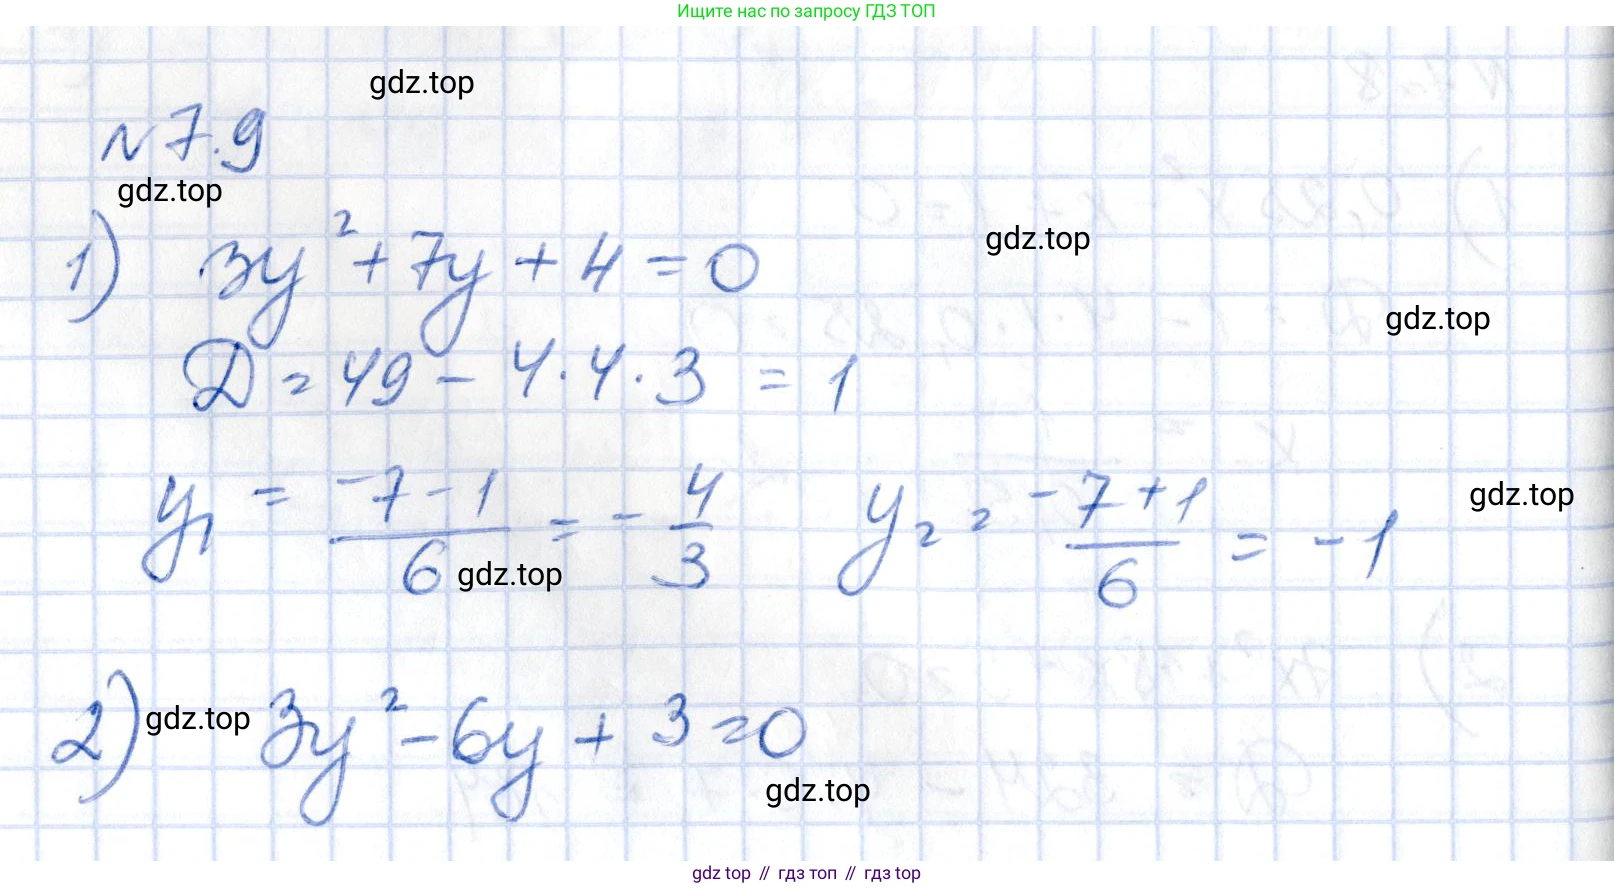 Ищите нас по запросу ГДЗ ТОП
gdz.top
№7.9
gdz.top
gdz.top
1) 3y² + 7y + 4 = 0
gdz.top
D = 49 - 4 · 4 · 3 = 1
y₁ = (-7 - 1)/6 = - 4/3 y₂ = (-7 + 1)/6 = -1
gdz.top
gdz.top
2) 3y² - 6y + 3 = 0
gdz.top
gdz.top
gdz top // гдз топ // гдз top